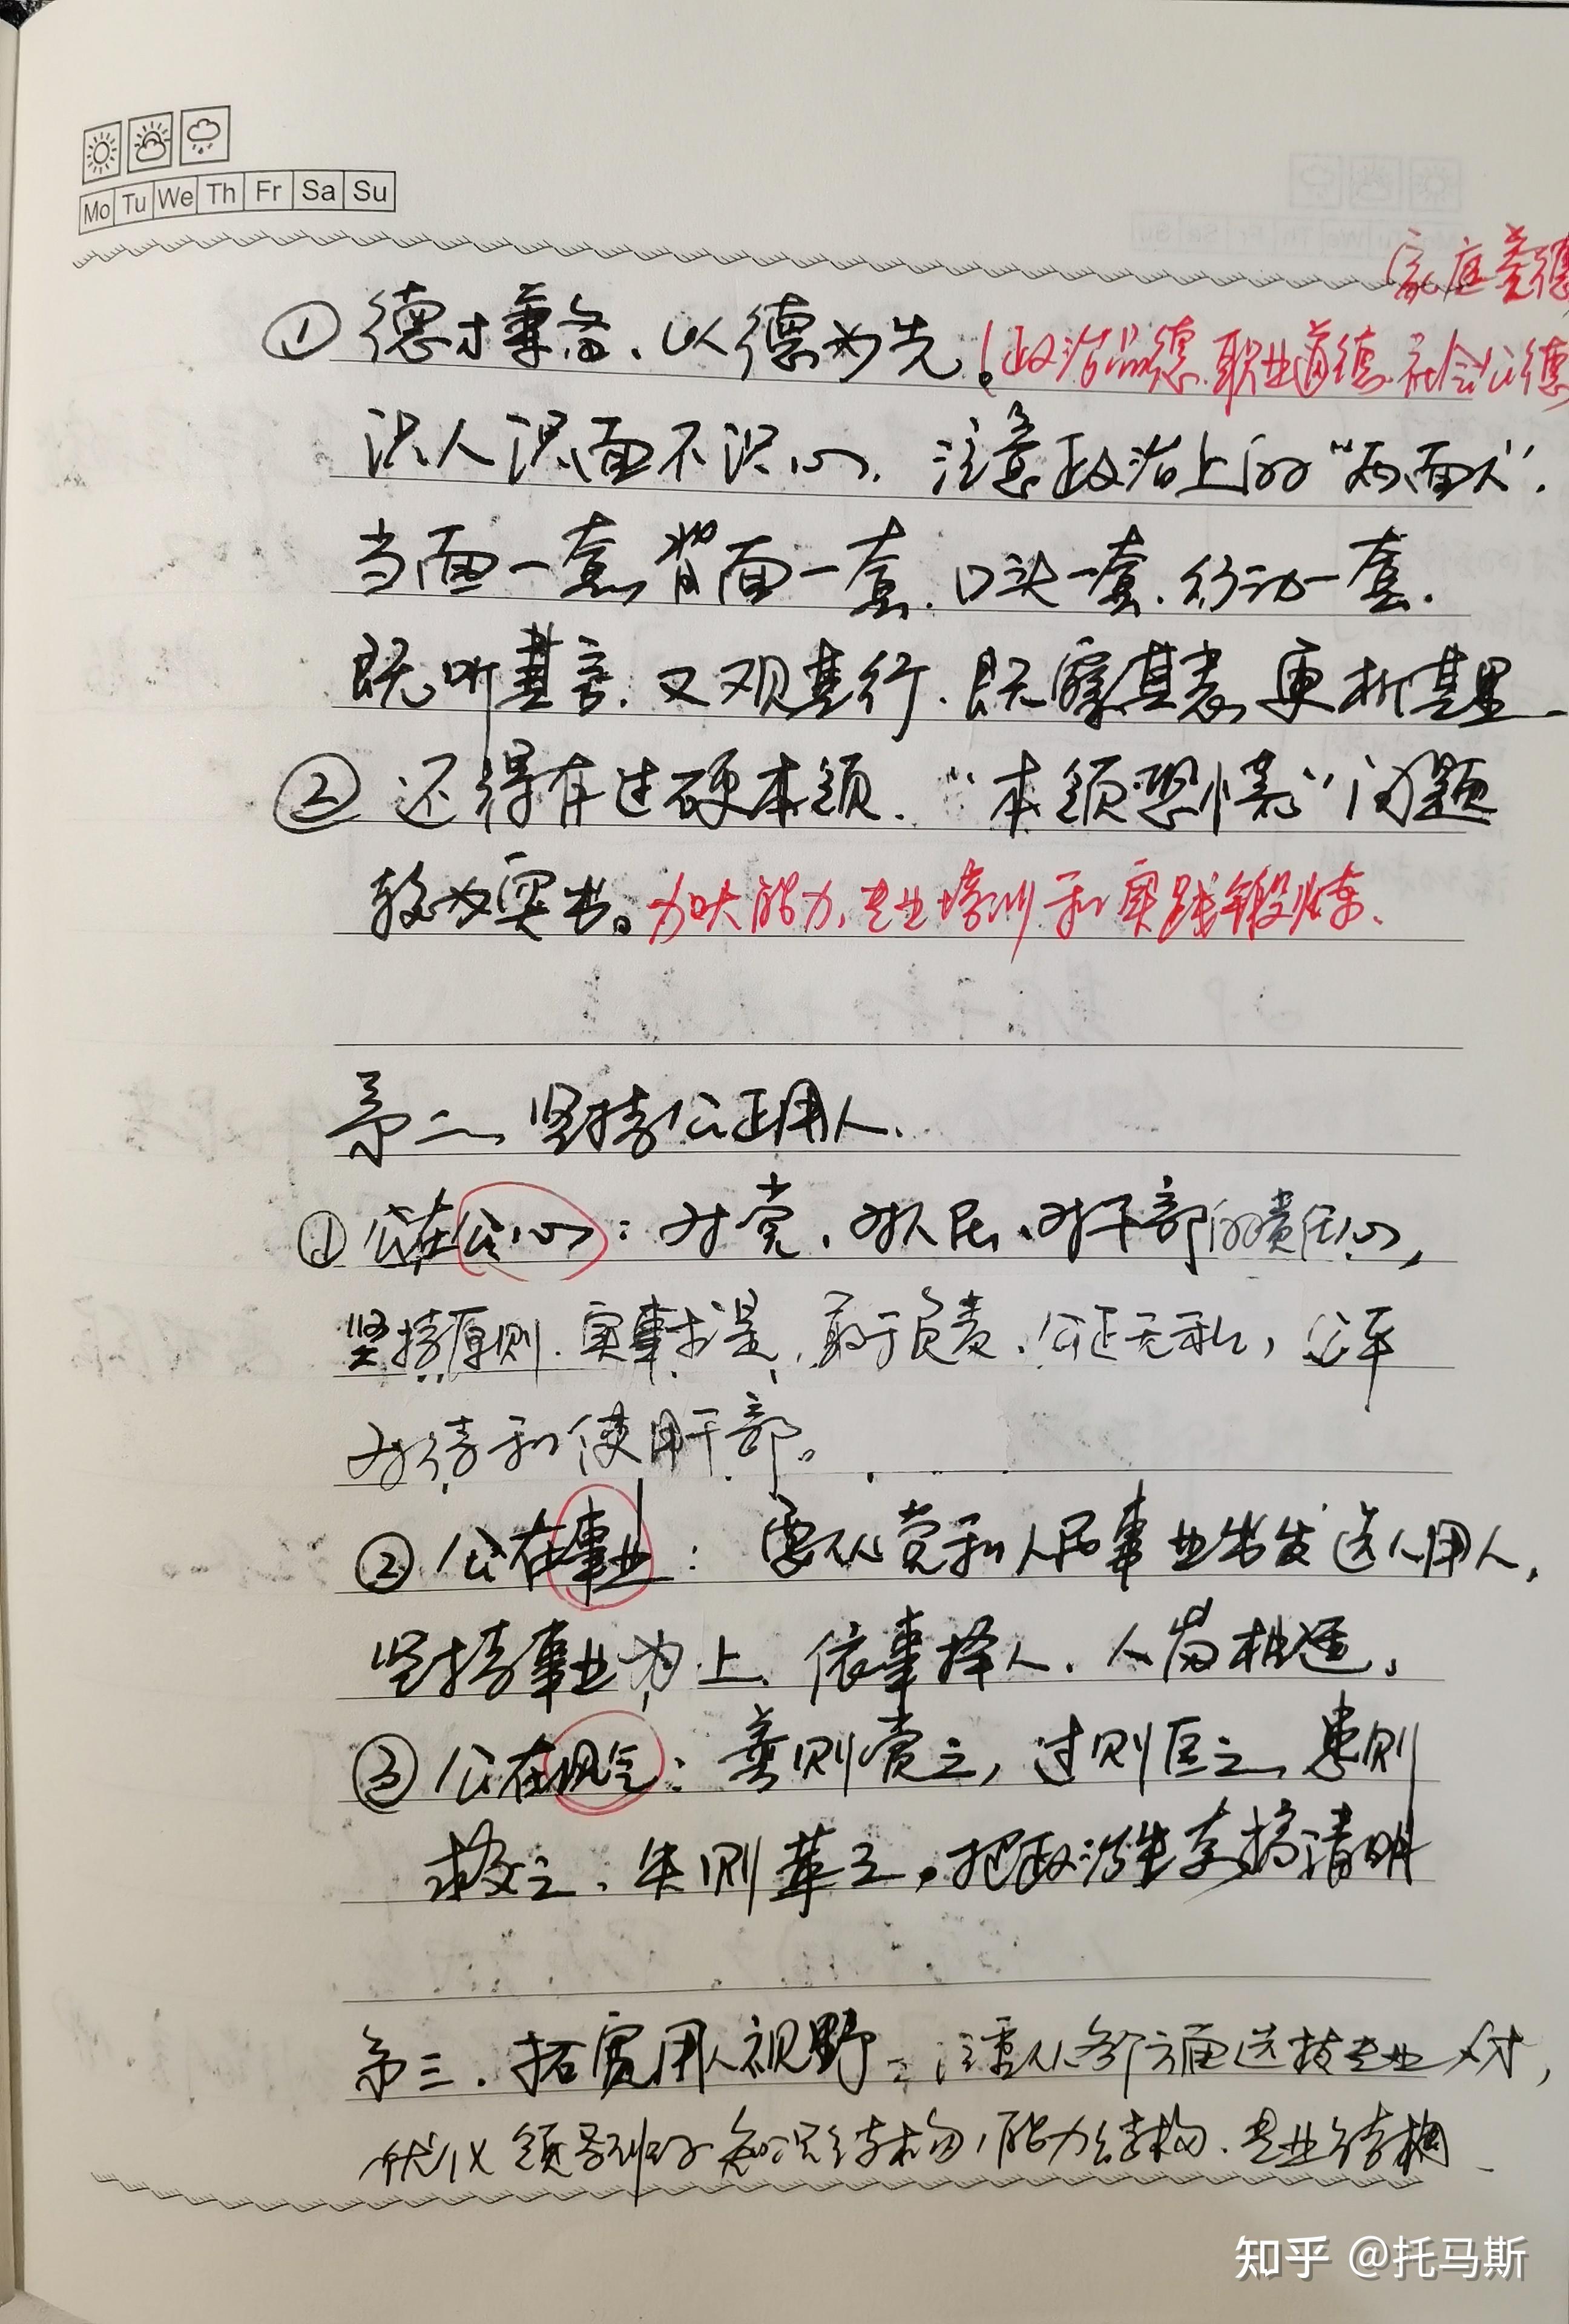 Mo Tu We Th Fr Sa Su
家庭美德
①德才兼备、以德为先。(政治品德、职业道德、社会公德
识人识面不识心,注意政治上的“两面人”.
当面一套,背面一套,口头一套,行动一套.
既听其言,又观其行.既察其表,更析其里
②还得有过硬本领."本领恐慌"问题
较为突出。加大能力、专业培训和实践锻炼、
第二、坚持公正用人、
①公在公心:对党、对人民、对干部的责任心,
坚持原则.实事求是、敢于负责、公正无私,公平
对待和使用干部。
②公在事业:要从党和人民事业出发选人用人,
坚持事业为上、依事择人、人岗相适。
③公在风气:善则赏之,过则匡之,患则
救之、失则革之。把政治生态搞清明
第三.拓宽用人视野:注重从各方面选拔专业人才,
优化领导班子知识结构,能力结构、专业结构
知乎 @托马斯